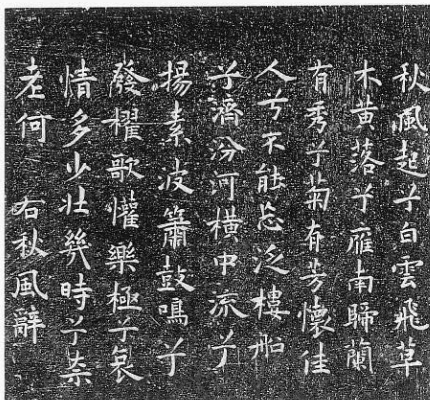 秋風起兮白雲飛草
木黃落兮雁南歸蘭
有秀兮菊有芳懷佳
人兮不能忘泛樓船
兮濟汾河橫中流兮
揚素波簫鼓鳴兮
發櫂歌懽樂極兮哀
情多少壯幾時兮柰
老何 右秋風辭